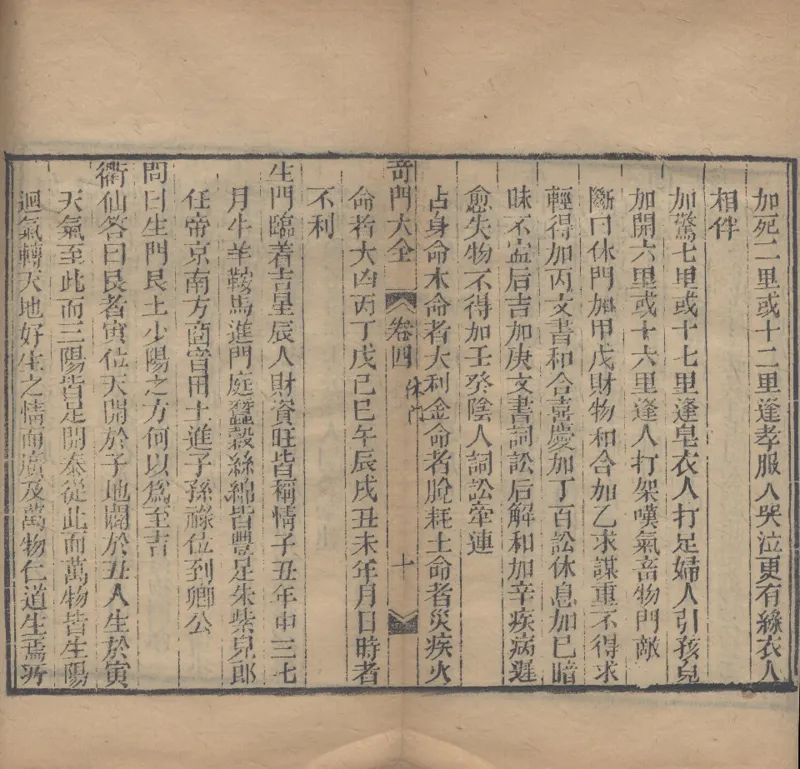 加死二里或十二里逢孝服人哭泣更有綠衣人
相伴
加驚七里或十七里逢皂衣人打足婦人引孩兒
加開六里或十六里逢人打架嘆氣畜物鬥敵
斷曰休門加甲戊財物和合加乙求謀重不得求
輕得加丙文書和合喜慶加丁百訟休息加己暗
昧不寍后吉加庚文書詞訟后解和加辛疾病遲
愈失物不得加壬癸陰人詞訟牽連
占身命木命者大利金命者脫耗土命者災疾火
奇門大全 卷四 休門 十
命者大凶丙丁戊己巳午辰戌丑未年月日時者
不利
生門臨着吉星辰人財資旺皆稱情子丑年中三七
月牛羊鞍馬進門庭蠶穀絲綿皆豐足朱紫兒郎
任帝京南方商官田士進子孫祿位到卿公
問曰生門艮土少陽之方何以爲至吉
衢仙答曰艮者寅位天開於子地闢於丑人生於寅
天氣至此而三陽皆足開泰從此而萬物皆生陽
迴氣轉天地好生之情而廣及萬物仁道生焉所